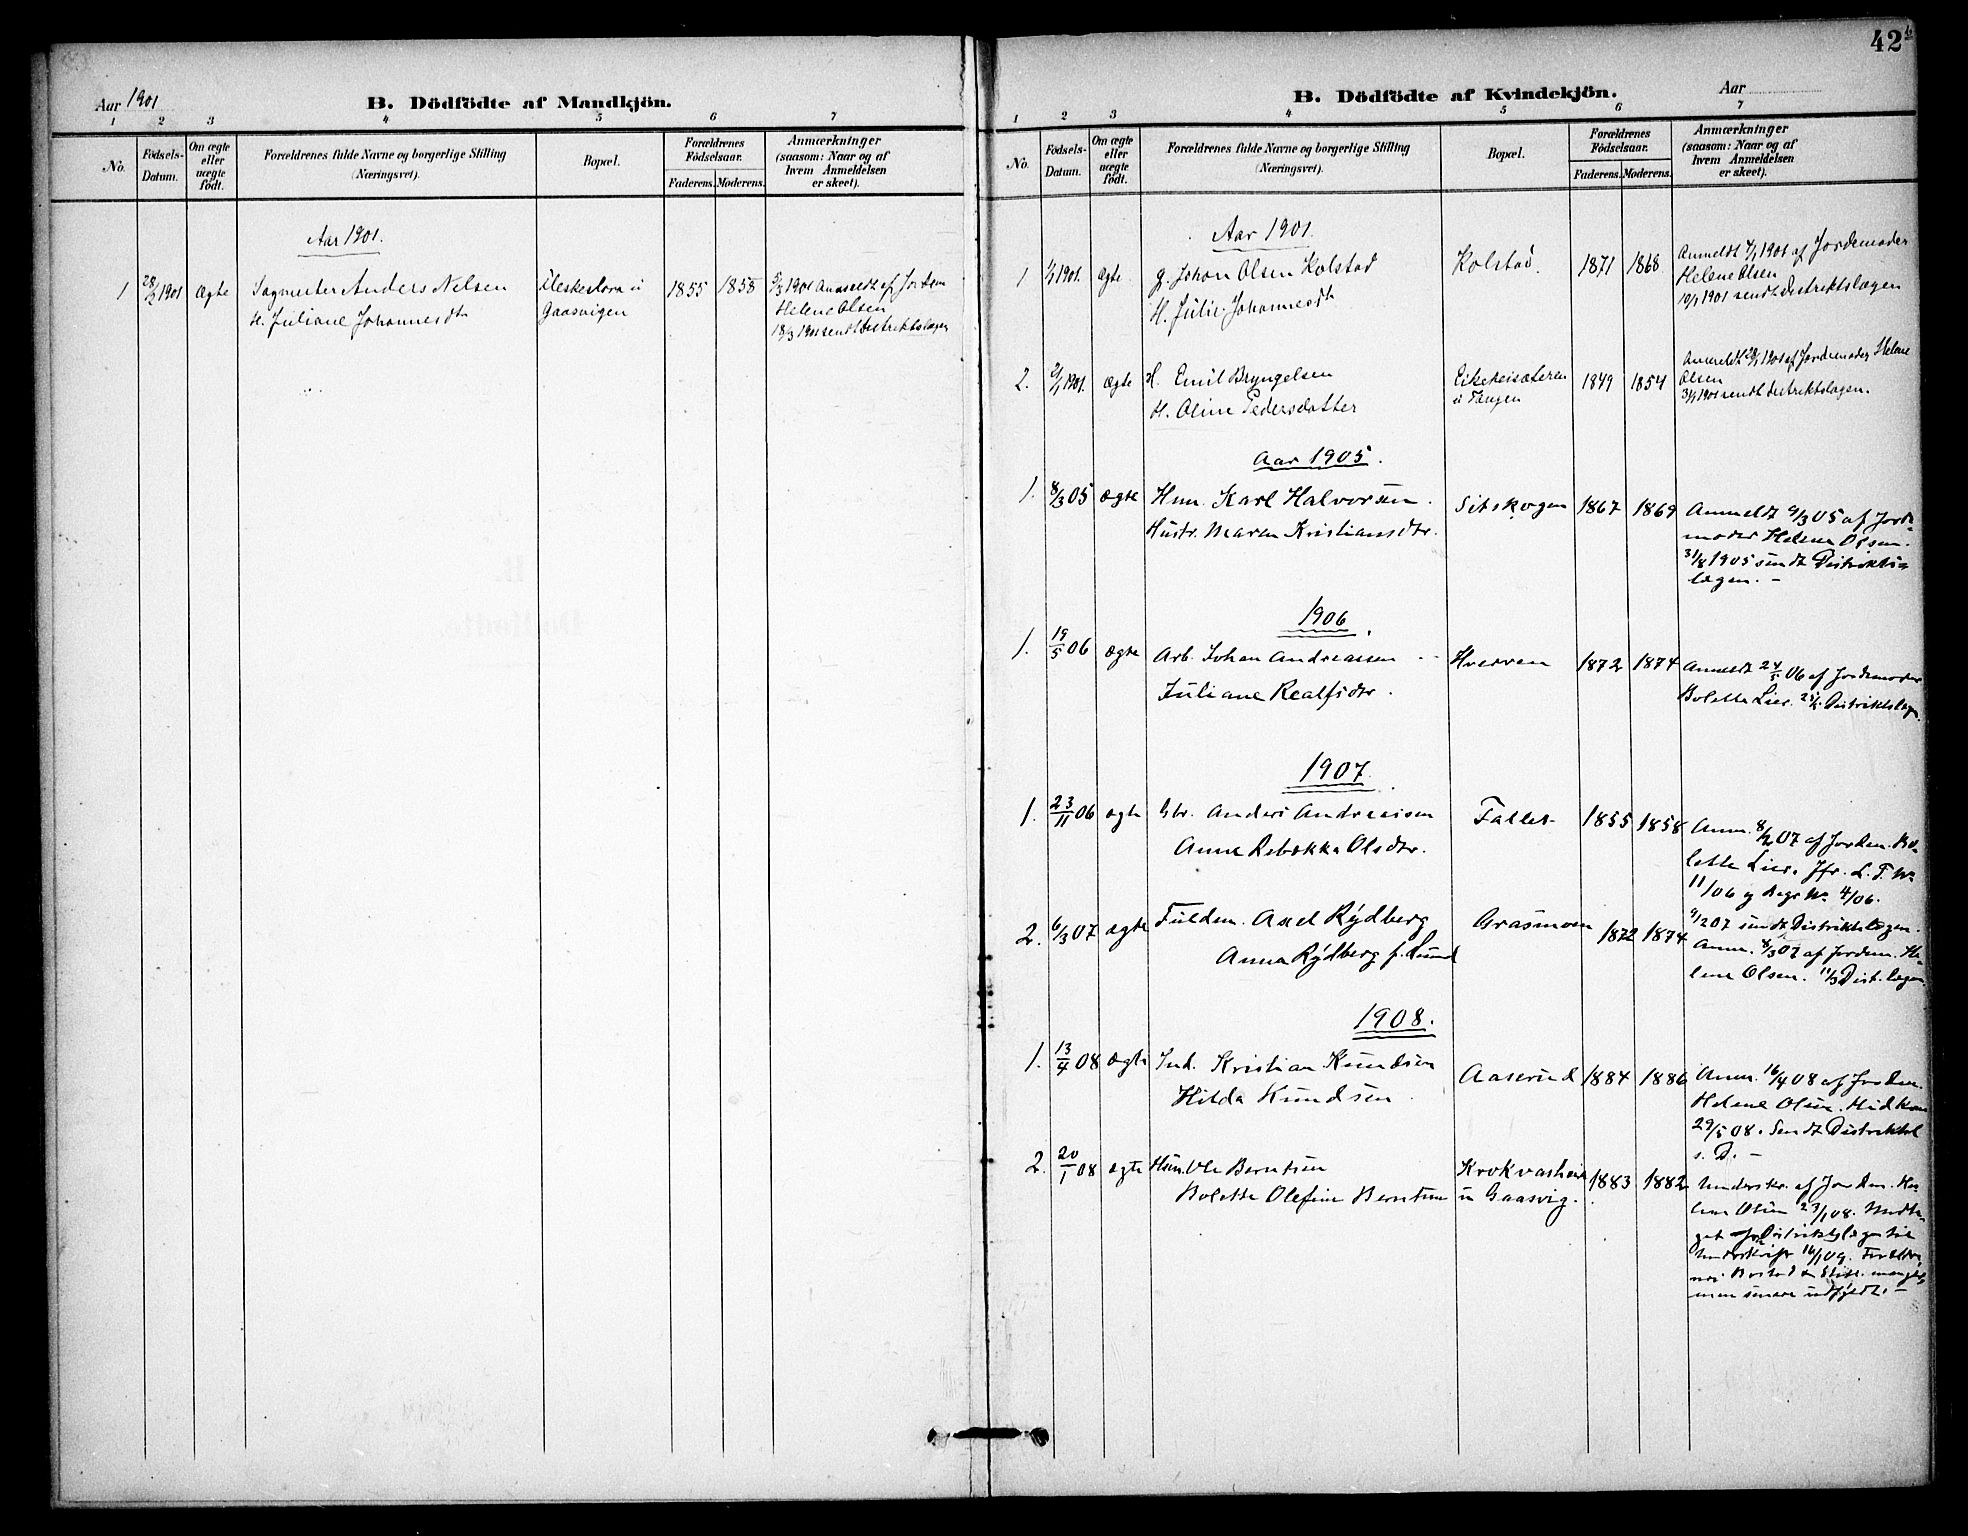 Aar 1901
B. Dödfödte af Mandkjön.
1 2 3 4 5 6 7
No.
Födsels-
Datum.
Om ægte
eller
uægte
födt.
Forældrenes fulde Navne og borgerlige Stilling
(Næringsvei).
Bopæl.
Forældrenes
Födselsaar.
Faderens. Moderens.
Anmærkninger
(saasom: Naar og af
hvem Anmeldelsen
er skeet).
Aar 1901.
1 28/2 1901 Ægte Sagmester Anders Nelsen
H. Juliane Johannesdt
Gaasvigen
1855 1858
5/3 1901 Anmeldt af Jordem
Helene Olsen
18/3 1901 sendt Distriktslægen
42b
B. Dödfödte af Kvindekjön.
Aar
1 2 3 4 5 6 7
No.
Födsels-
Datum.
Om ægte
eller
uægte
födt.
Forældrenes fulde Navne og borgerlige Stilling
(Næringsvei).
Bopæl.
Forældrenes
Födselsaar.
Faderens. Moderens.
Anmærkninger
(saasom: Naar og af
hvem Anmeldelsen
er skeet).
Aar 1901.
1 1901. Ægte g. Johan Olsen Kolstad
H. Julie Johannesdt
Kolstad. 1871 1868
Anmeldt 1901 af Jordemoder
Helene Olsen
10/1 1901 sendt Distriktslægen
2. 1901. Ægte H. Emil Bryngelsen
H. Oline Pedersdatter
u Tangen
1849 1854
Anmeldt 1901 af Jordemoder Helene
Olsen
1901 sendt Distriktslægen.
Aar 1905.
1. 8/3 05 Ægte Hm. Karl Halvorsen.
Hustr. Maren Kristiansdtr.
Sitskogen 1867 1869
Anmeldt 9/3 05 af Jord-
moder Helene Olsen.
31/8 1905 sendt Distrikts-
lægen. -
1906.
1. 19/5 06 Ægte Arb. Johan Andreassen
Juliane Realfsdtr.
Hverven 1872 1874
Anmeldt 24/5 06 af Jordemoder
Bolette Lier. 25/5 Distriktslægen.
1907.
1. 23/11 06 ægte Gbr. Anders Andreassen
Anne Rebekka Olsdtr.
1855 1858
Anm. 8/2 07 af Jordem. Bo-
lette Lier. Jfr. L. F. No
11/06 og Dags No 4/06.
9/2 07 sendt Distriktslægen.
2. 6/3 07 ægte Fuldm. Axel Rydberg
Anna Rydberg f. Lund
Grasmoen 1872 1874
Anm. 8/3 07 af Jordem. He-
lene Olsen. 11/3 Dist.lægen.
1908.
1. 13/4 08 Ægte Ind. Kristian Knudsen
Hilda Knudsen.
Aaserud 1884 1886
Anm. 16/4 08 af Jordem.
Helene Olsen. Midkom
29/5 08. Sendt Distriktsl
s. D. -
2. 20/1 08 ægte Hsm. Ole Berntsen
Bolette Olefine Berntsen
u Gaasvig.
1883 1882
Underskr. af Jordem. He-
lene Olsen 23/1 08. Modta-
get fr Distriktslægen til
Underskrift 16/1 09. Forældre-
nes Bosted mangled,
men senere udfyldt. -